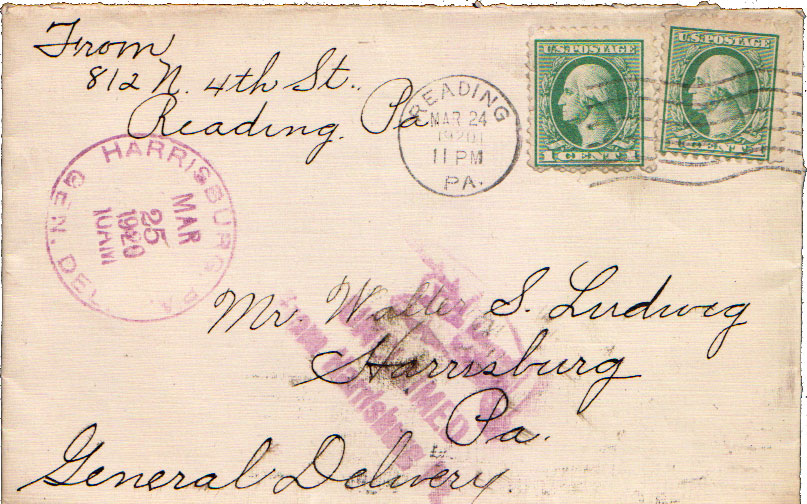 From
812 N. 4th St.
Reading, Pa
READING
MAR 24
1920
11 PM
PA.
U.S. POSTAGE
1 CENT 1
U.S. POSTAGE
1 CENT 1
HARRISBURG, PA.
GEN. DEL.
MAR
25
1920
10AM
Mr. Walter S. Ludwig
Harrisburg
Pa.
General Delivery
from Harrisburg